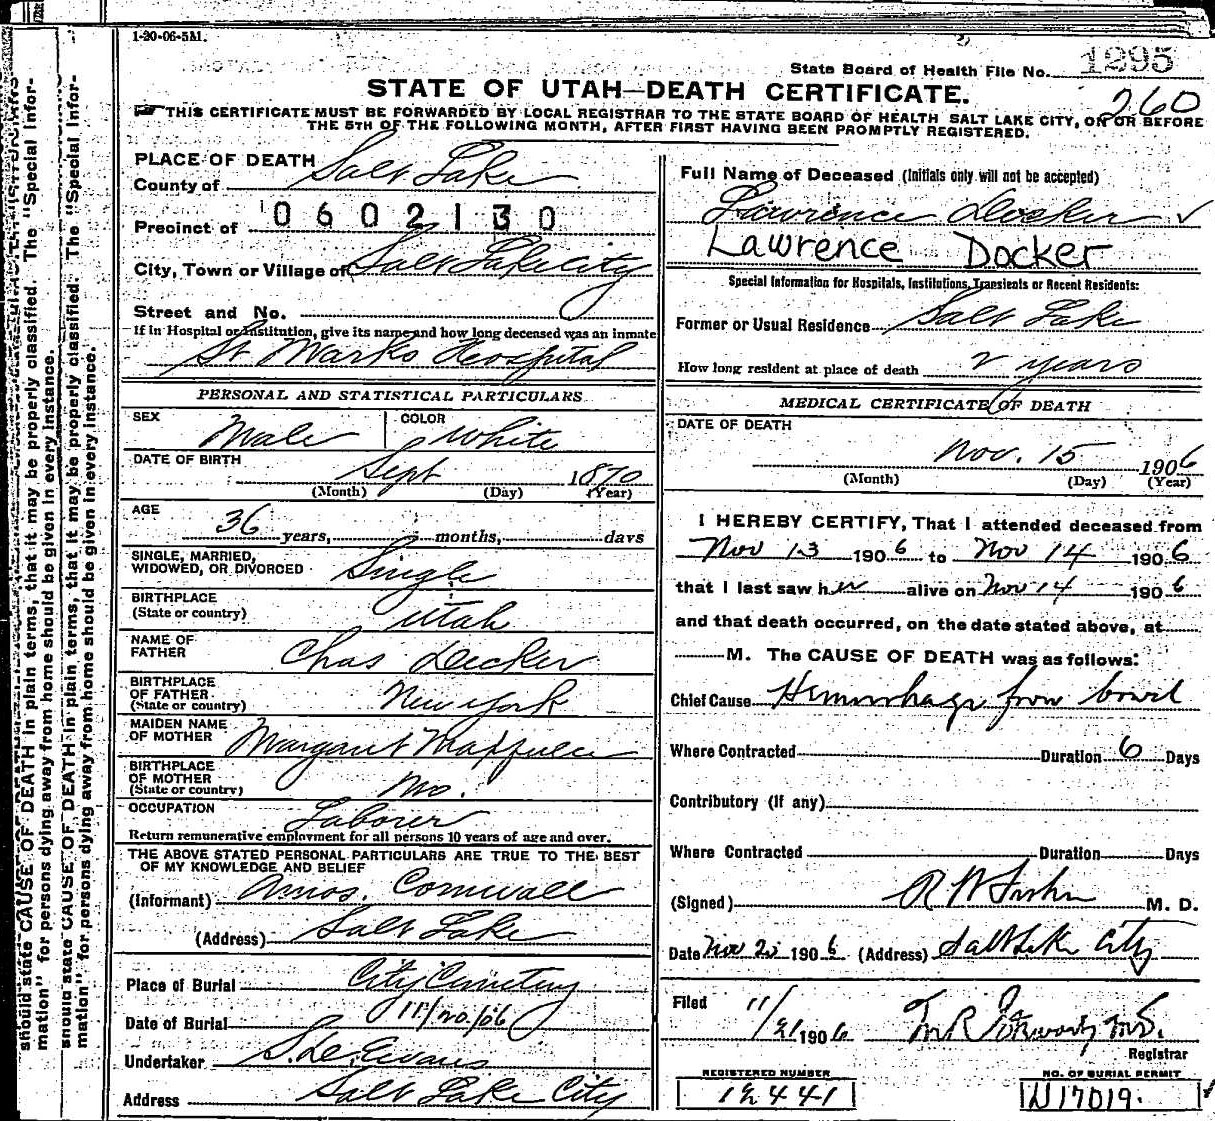 1-20-06-5M.
State Board of Health File No. 1295
STATE OF UTAH—DEATH CERTIFICATE.
260
THIS CERTIFICATE MUST BE FORWARDED BY LOCAL REGISTRAR TO THE STATE BOARD OF HEALTH SALT LAKE CITY, ON OR BEFORE
THE 5TH OF THE FOLLOWING MONTH, AFTER FIRST HAVING BEEN PROMPTLY REGISTERED.
PLACE OF DEATH
County of Salt Lake
Precinct of 0602130
City, Town or Village of Salt Lake City
Street and No.
If in Hospital or Institution, give its name and how long deceased was an inmate
St Marks Hospital
PERSONAL AND STATISTICAL PARTICULARS
SEX Male COLOR White
DATE OF BIRTH Sept 1870
(Month) (Day) (Year)
AGE
36 years, months, days
SINGLE, MARRIED,
WIDOWED, OR DIVORCED Single
BIRTHPLACE
(State or country) Utah
NAME OF
FATHER Chas Decker
BIRTHPLACE
OF FATHER
(State or country) New York
MAIDEN NAME
OF MOTHER Margaret
BIRTHPLACE
OF MOTHER
(State or country) Mo.
OCCUPATION Laborer
Return remunerative employment for all persons 10 years of age and over.
THE ABOVE STATED PERSONAL PARTICULARS ARE TRUE TO THE BEST
OF MY KNOWLEDGE AND BELIEF
(Informant) Amos. Cornwall
(Address) Salt Lake
Place of Burial City Cemetery
Date of Burial 11/20/06
Undertaker Evans
Address Salt Lake City
Full Name of Deceased (Initials only will not be accepted)
Lawrence Docker
Lawrence Docker
Special Information for Hospitals, Institutions, Transients or Recent Residents:
Former or Usual Residence Salt Lake
How long resident at place of death 2 years
MEDICAL CERTIFICATE OF DEATH
DATE OF DEATH
Nov. 15 1906
(Month) (Day) (Year)
I HEREBY CERTIFY, That I attended deceased from
Nov 13 1906 to Nov 14 1906
that I last saw him alive on Nov 14 1906
and that death occurred, on the date stated above, at
M. The CAUSE OF DEATH was as follows:
Chief Cause Hemorrhage from bowel
Where Contracted Duration 6 Days
Contributory (If any)
Where Contracted Duration Days
(Signed) R W M. D.
Date Nov 20 1906 (Address) Salt Lake City
Filed 11/21 1906
Registrar
REGISTERED NUMBER
12441
NO. OF BURIAL PERMIT
N17019.
should state CAUSE OF DEATH in plain terms, that it may be properly classified. The "Special Infor-
mation" for persons dying away from home should be given in every instance.
should state CAUSE OF DEATH in plain terms, that it may be properly classified. The "Special Infor-
mation" for persons dying away from home should be given in every instance.